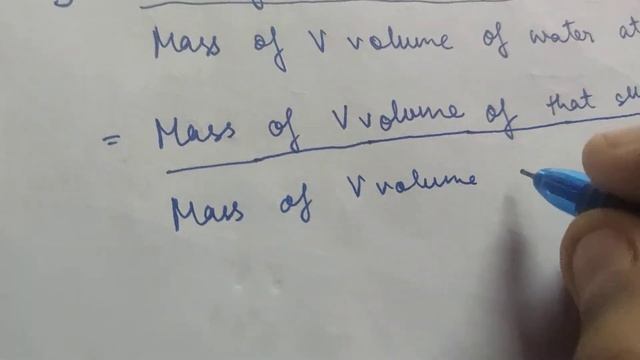 Mass of V volume of water at
= Mass of V volume of that
Mass of V volume